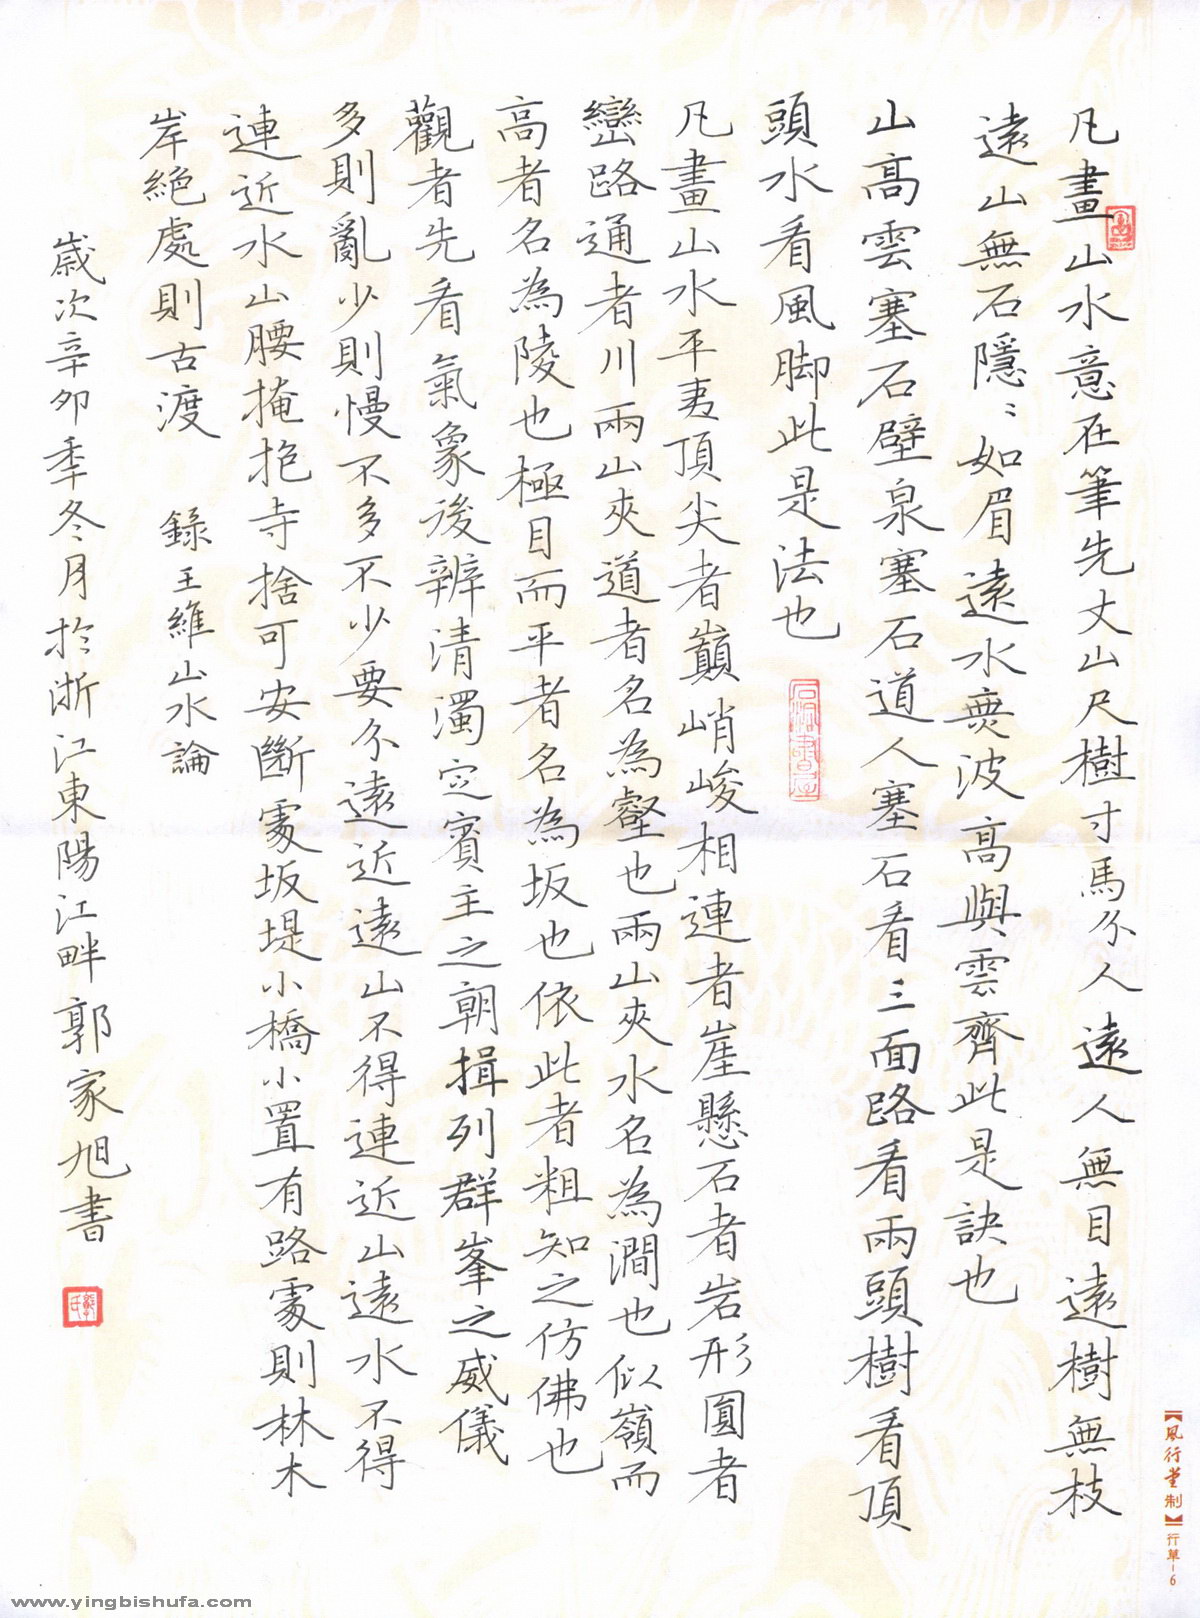 凡畫山水意在筆先丈山尺樹寸馬分人遠人無目遠樹無枝
遠山無石隱々如眉遠水無波高與雲齊此是訣也
山高雲塞石壁泉塞石道人塞石看三面路看兩頭樹看頂
頭水看風脚此是法也
凡畫山水平夷頂尖者巔峭峻相連者崖懸石者岩形圓者
巒路通者川兩山夾道者名為壑也兩山夾水名為澗也似嶺而
高者名為陵也極目而平者名為坂也依此者粗知之仿佛也
觀者先看氣象後辨清濁定賓主之朝揖列群峯之威儀
多則亂少則慢不多不少要分遠近遠山不得連近山遠水不得
連近水山腰掩抱寺捨可安斷處坂堤小橋小置有路處則林木
岸絕處則古渡 錄王維山水論
歲次辛卯季冬月於浙江東陽江畔郭家旭書
【風行堂制】行草-6
www.yingbishufa.com